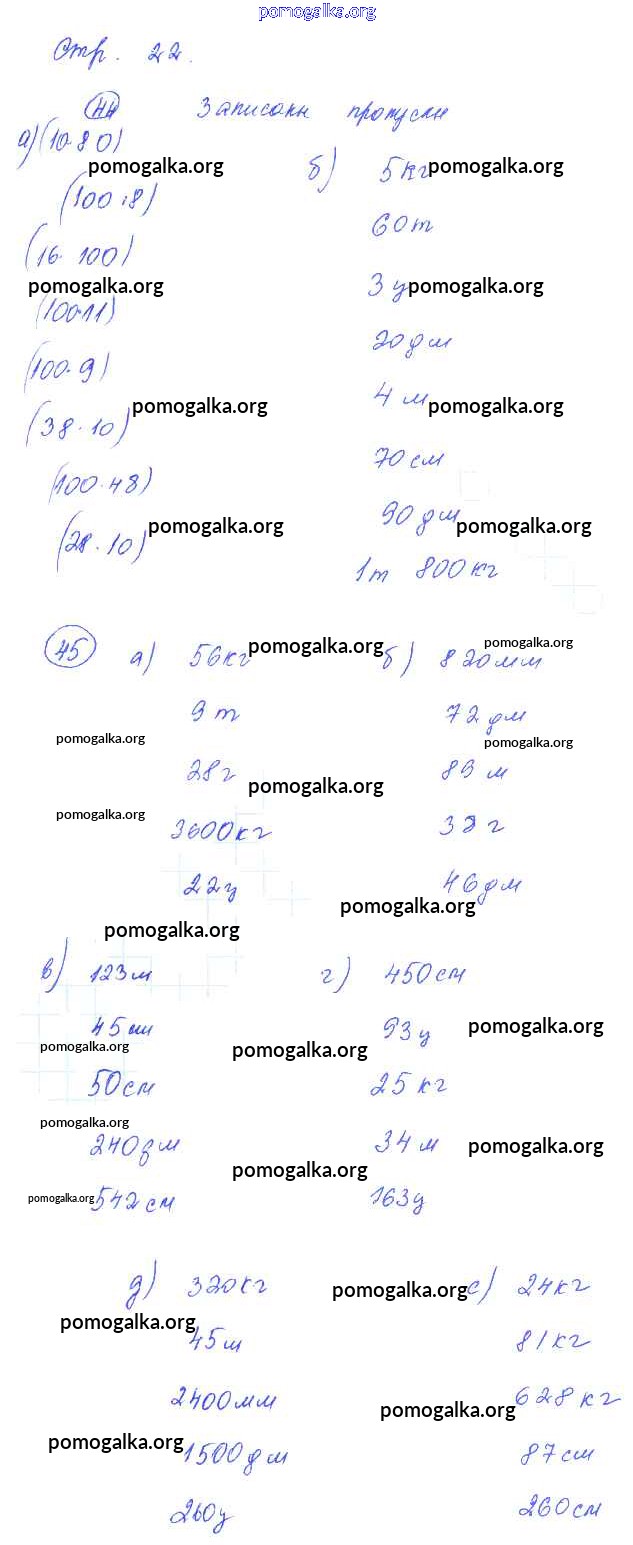 pomogalka.org
Стр. 22.
44 Записаны пропуски
а) (10·80)
pomogalka.org
б) 5 кг pomogalka.org
(100·8)
60 т
(16·100)
pomogalka.org
3 ц pomogalka.org
(100·11)
20 дм
(100·9)
4 м pomogalka.org
(38·10) pomogalka.org
70 см
(100·48)
90 дм pomogalka.org
(28·10) pomogalka.org
1 т 800 кг
45 а) 56 кг pomogalka.org б) 820 мм pomogalka.org
9 т 72 дм
pomogalka.org pomogalka.org
28 г pomogalka.org 89 м
pomogalka.org
3600 кг 38 г
22 ц 46 дм
pomogalka.org
pomogalka.org
в) 123 м г) 450 см
45 м 93 ц pomogalka.org
pomogalka.org pomogalka.org
50 см 25 кг
pomogalka.org
240 дм 34 м pomogalka.org
pomogalka.org
pomogalka.org 542 см 163 ц
д) 320 кг pomogalka.org е) 24 кг
pomogalka.org
45 м 81 кг
2400 мм 628 кг
pomogalka.org
pomogalka.org 1500 дм 87 см
260 ц 260 см